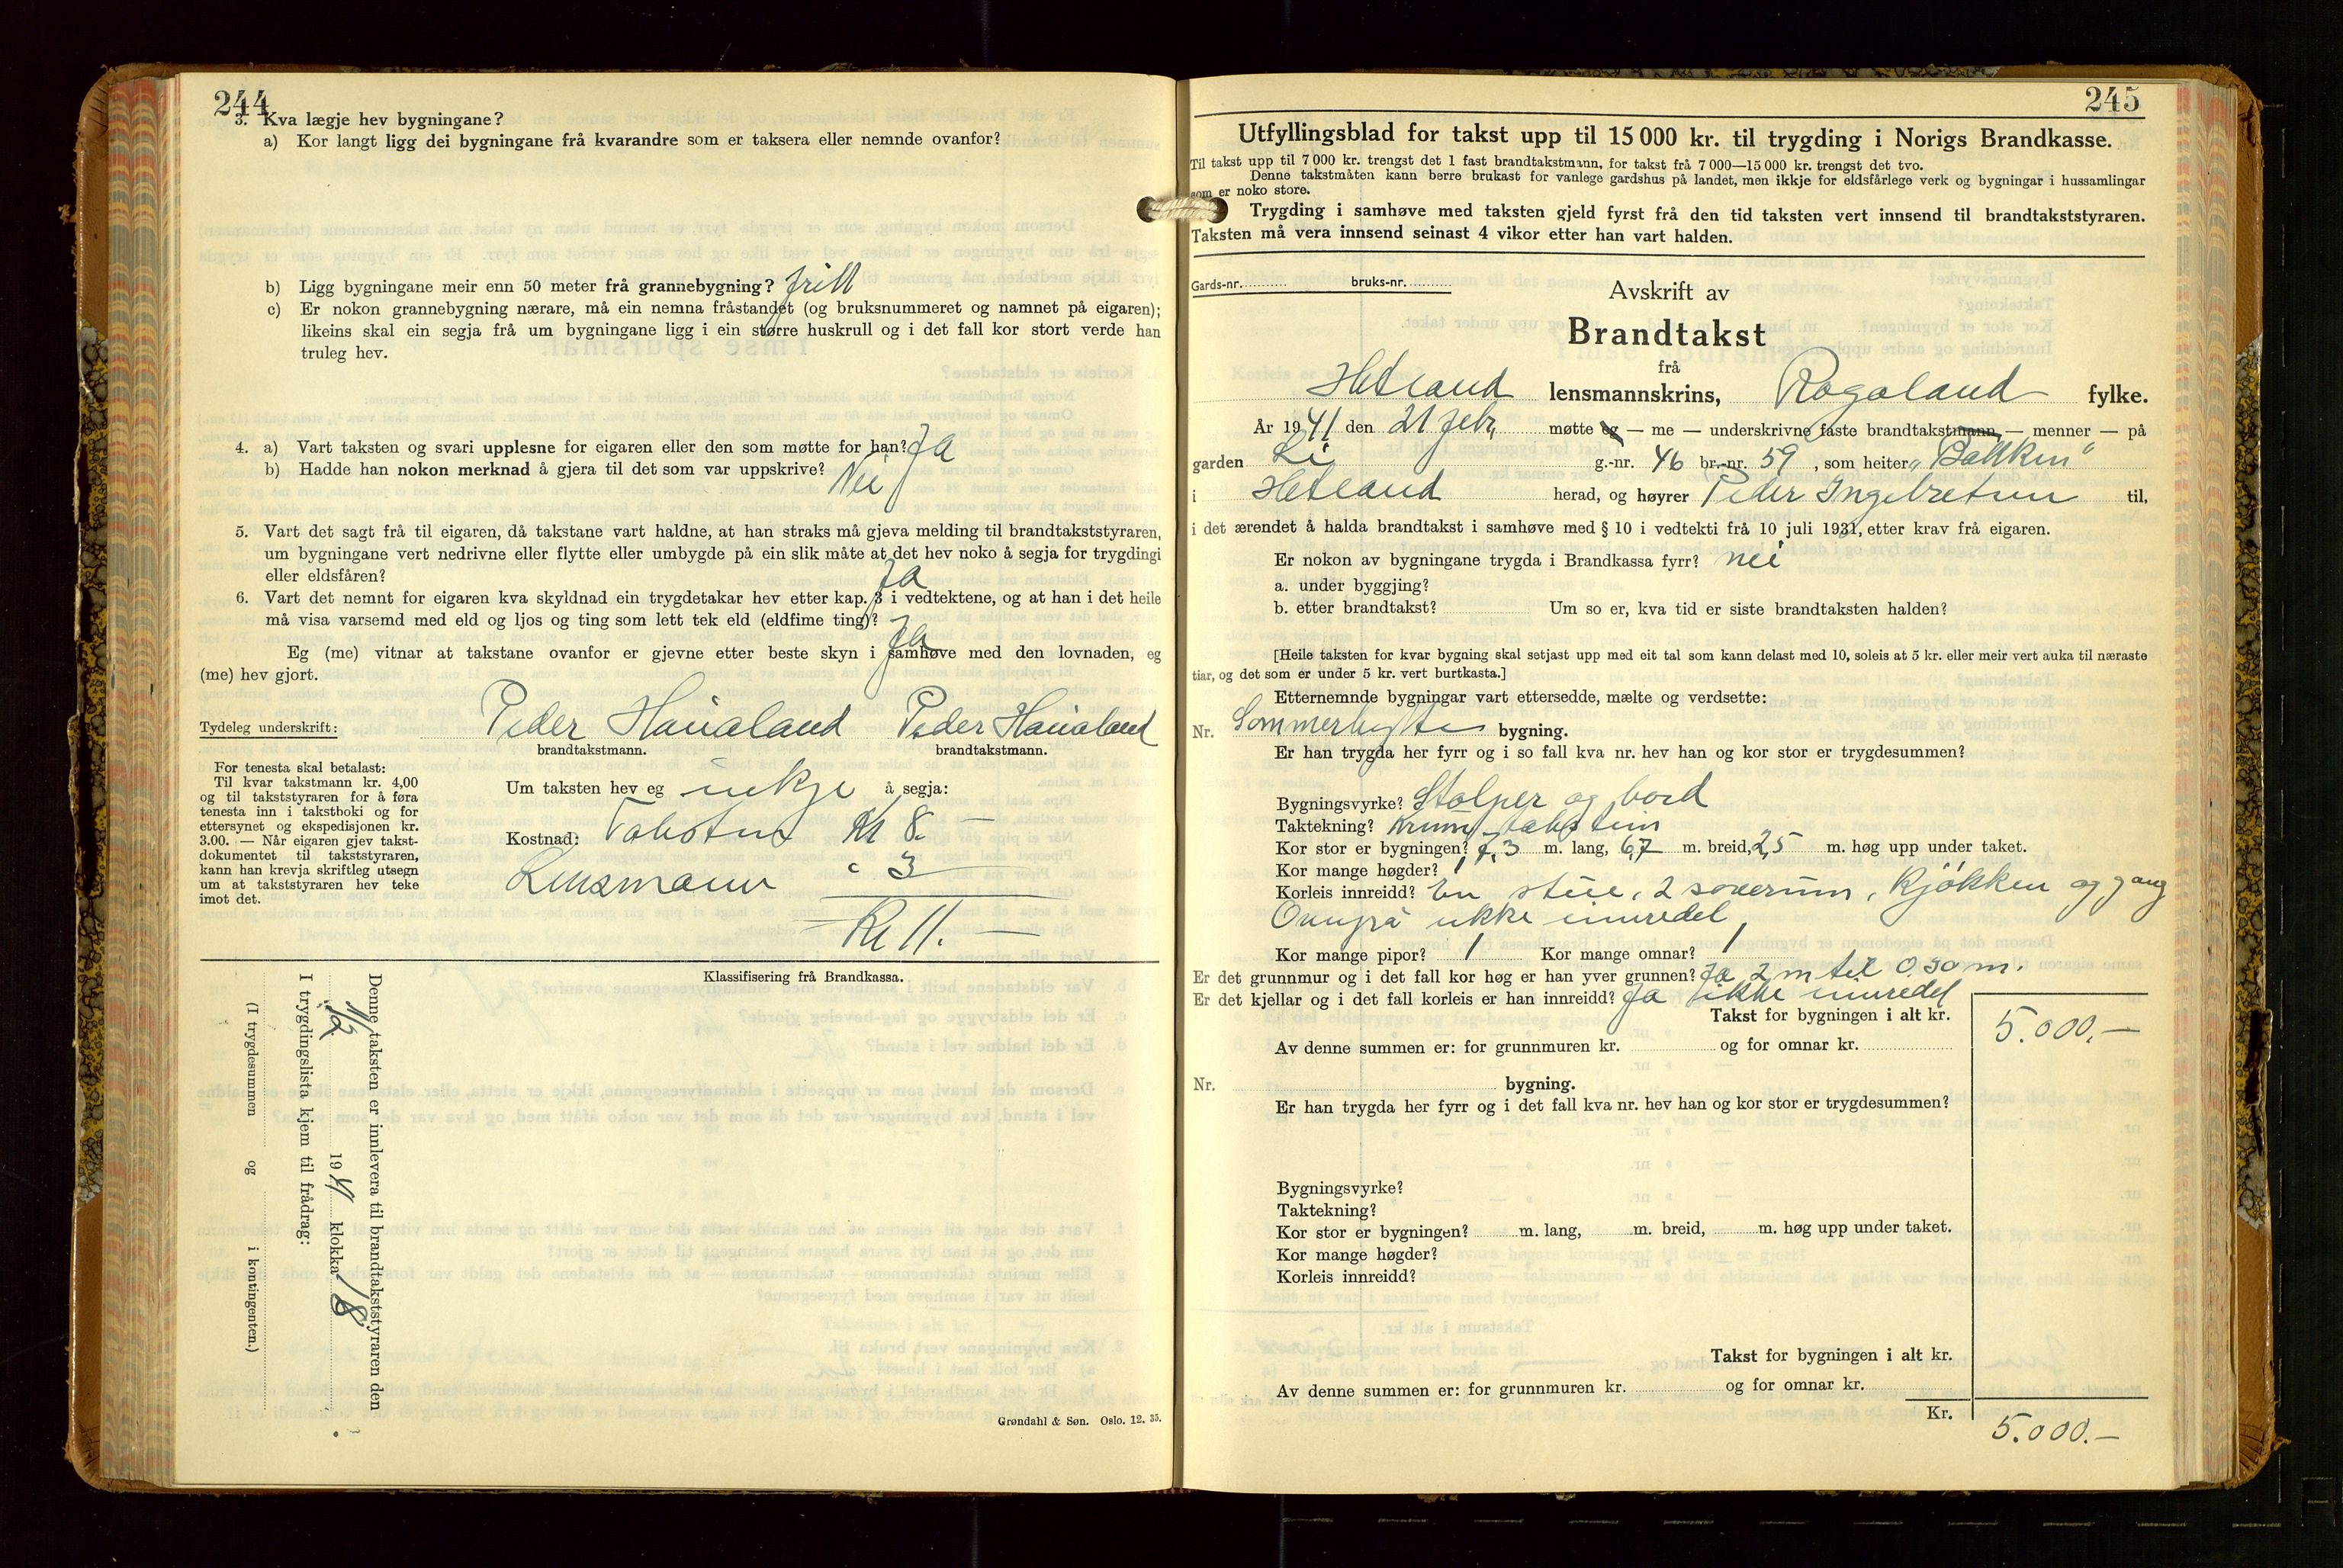 244
3. Kva lægje hev bygningane?
a) Kor langt ligg dei bygningane frå kvarandre som er taksera eller nemnde ovanfor?
b) Ligg bygningane meir enn 50 meter frå grannebygning? fritt
c) Er nokon grannebygning nærare, må ein nemna fråstandet (og bruksnummeret og namnet på eigaren);
likeins skal ein segja frå um bygningane ligg i ein større huskrull og i det fall kor stort verde han
truleg hev.
4. a) Vart taksten og svari upplesne for eigaren eller den som møtte for han? Ja
b) Hadde han nokon merknad å gjera til det som var uppskrive? Nei
5. Vart det sagt frå til eigaren, då takstane vart haldne, at han straks må gjeva melding til brandtakststyraren,
um bygningane vert nedrivne eller flytte eller umbygde på ein slik måte at det hev noko å segja for trygdingi
eller eldsfåren? Ja
6. Vart det nemnt for eigaren kva skyldnad ein trygdetakar hev etter kap. 3 i vedtektene, og at han i det heile
må visa varsemd med eld og ljos og ting som lett tek eld (eldfime ting)? Ja
Eg (me) vitnar at takstane ovanfor er gjevne etter beste skyn i samhøve med den lovnaden, eg
(me) hev gjort.
Tydeleg underskrift: Peder Haualand Peder Haualand
brandtakstmann. brandtakstmann.
For tenesta skal betalast:
Til kvar takstmann kr. 4,00
og til takststyraren for å føra
tenesta inn i takstboki og for
ettersynet og ekspedisjonen kr.
3.00. — Når eigaren gjev takst-
dokumentet til takststyraren,
kann han krevja skriftleg utsegn
um at takststyraren hev teke
imot det.
Um taksten hev eg inkje å segja:
Kostnad: Kr 8. —
Lensmann " 3
Kr 11. —
Klassifisering frå Brandkassa.
Denne taksten er innlevera til brandtakststyraren den
1941 klokka 18
I trygdingslista kjem til frådrag:
(I trygdesummen og i kontingenten.)
Grøndahl & Søn. Oslo. 12. 35.
245
Utfyllingsblad for takst upp til 15 000 kr. til trygding i Norigs Brandkasse.
Til takst upp til 7 000 kr. trengst det 1 fast brandtakstmann, for takst frå 7 000—15 000 kr. trengst det tvo.
Denne takstmåten kann berre brukast for vanlege gardshus på landet, men ikkje for eldsfårlege verk og bygningar i hussamlingar
som er noko store.
Trygding i samhøve med taksten gjeld fyrst frå den tid taksten vert innsend til brandtakststyraren.
Taksten må vera innsend seinast 4 vikor etter han vart halden.
Gards-nr. bruks-nr.
Avskrift av
Brandtakst
frå
Hetland lensmannskrins, Rogaland fylke.
År 1941 den 21 febr, møtte eg — me — underskrivne faste brandtakstmann — menner — på
garden Li g.-nr. 46 br.-nr. 59, som heiter "Bakken"
i Hetland herad, og høyrer Peder Ingebretsen til,
i det ærendet å halda brandtakst i samhøve med § 10 i vedtekti frå 10 juli 1931, etter krav frå eigaren.
Er nokon av bygningane trygda i Brandkassa fyrr? nei
a. under byggjing?
b. etter brandtakst? Um so er, kva tid er siste brandtaksten halden?
[Heile taksten for kvar bygning skal setjast upp med eit tal som kann delast med 10, soleis at 5 kr. eller meir vert auka til næraste
tiar, og det som er under 5 kr. vert burtkasta.]
Etternemnde bygningar vart ettersedde, mælte og verdsette:
Nr. Sommerhytte bygning.
Er han trygda her fyrr og i so fall kva nr. hev han og kor stor er trygdesummen?
Bygningsvyrke? Stolper og bord
Taktekning? Krum takstein
Kor stor er bygningen? 7,3 m. lang, 6,7 m. breid, 2,5 m. høg upp under taket.
Kor mange høgder? 1
Korleis innreidd? En stue, 2 soverum, Kjøkken og gang
Ovnpå ikke inredet
Kor mange pipor? 1 Kor mange omnar? 1
Er det grunnmur og i det fall kor høg er han yver grunnen? Ja 2 m til 0.50 m.
Er det kjellar og i det fall korleis er han innreidd? Ja ikke inredet
Takst for bygningen i alt kr. 5.000.—
Av denne summen er: for grunnmuren kr. og for omnar kr.
Nr. bygning.
Er han trygda her fyrr og i det fall kva nr. hev han og kor stor er trygdesummen?
Bygningsvyrke?
Taktekning?
Kor stor er bygningen? m. lang, m. breid, m. høg upp under taket.
Kor mange høgder?
Korleis innreidd?
Takst for bygningen i alt kr.
Av denne summen er: for grunnmuren kr. og for omnar kr.
Kr. 5.000.—